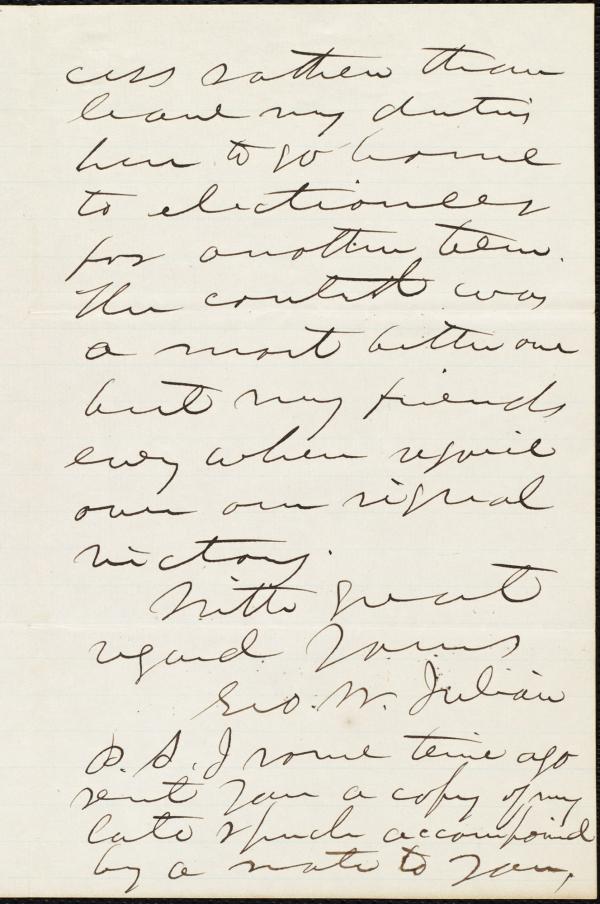 cess rather than
leave my duties
here to go home
to electioneer
for another term.
The contest was
a most bitter one
but my friends
every where rejoice
over our signal
victory.
With great
regard Yours
Geo. W. Julian
P. S. I some time ago
sent you a copy of my
late speech accompanied
by a note to you,